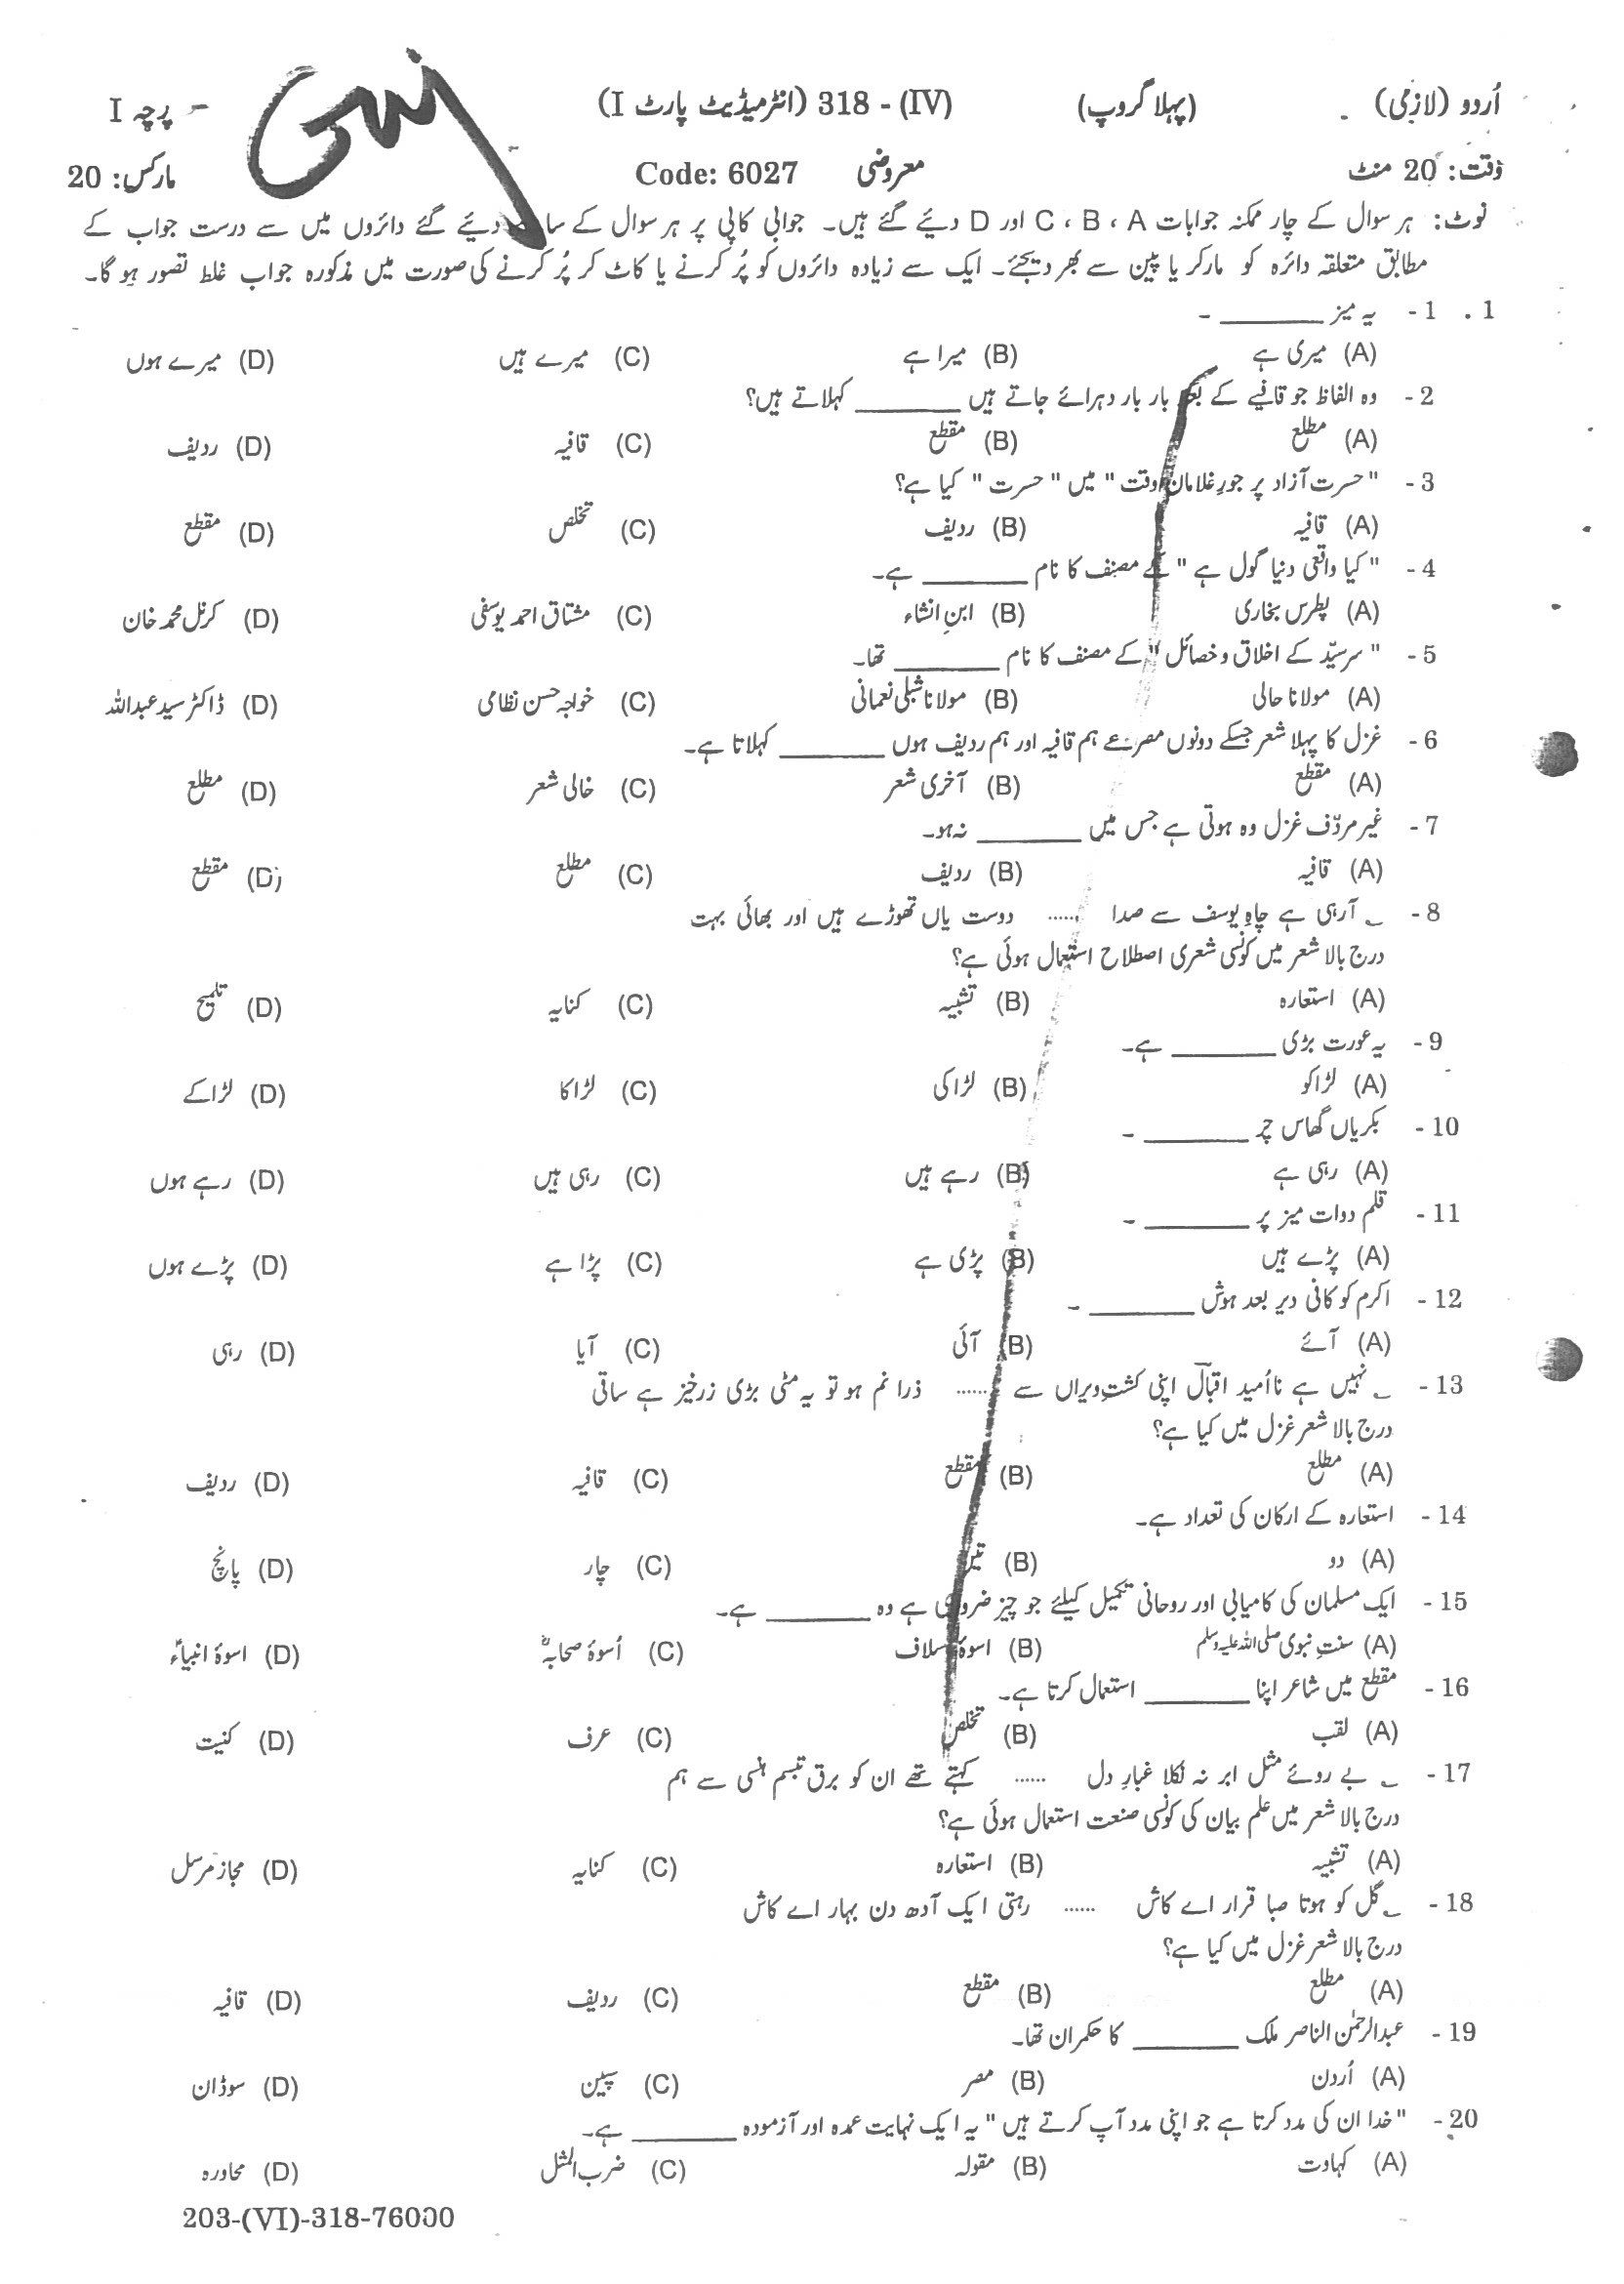 اُردو (لازمی) (پہلا گروپ) 318 - (IV) (انٹرمیڈیٹ پارٹ I) پرچہ I
وقت: 20 منٹ معروضی Code: 6027 مارکس: 20
نوٹ: ہر سوال کے چار ممکنہ جوابات A ، B ، C اور D دیئے گئے ہیں۔ جوابی کاپی پر ہر سوال کے دیئے گئے دائروں میں سے درست جواب کے
مطابق متعلقہ دائرہ کو مارکر یا پین سے بھر دیجئے۔ ایک سے زیادہ دائروں کو پُر کرنے یا کاٹ کر پُر کرنے کی صورت میں مذکورہ جواب غلط تصور ہو گا۔
1. 1- یہ میز ______ ۔
(A) میری ہے (B) میرا ہے (C) میرے ہیں (D) میرے ہوں
2- وہ الفاظ جو قافیے کے بعد بار بار دہرائے جاتے ہیں ______ کہلاتے ہیں؟
(A) مطلع (B) مقطع (C) قافیہ (D) ردیف
3- "حسرت آزاد پر جورِ غلامان وقت" میں "حسرت" کیا ہے؟
(A) قافیہ (B) ردیف (C) تخلص (D) مقطع
4- "کیا واقعی دنیا گول ہے" کے مصنف کا نام ______ ہے۔
(A) پطرس بخاری (B) ابنِ انشاء (C) مشتاق احمد یوسفی (D) کرنل محمد خان
5- "سرسیّد کے اخلاق و خصائل" کے مصنف کا نام ______ تھا۔
(A) مولانا حالی (B) مولانا شبلی نعمانی (C) خواجہ حسن نظامی (D) ڈاکٹر سید عبداللہ
6- غزل کا پہلا شعر جسکے دونوں مصرعے ہم قافیہ اور ہم ردیف ہوں ______ کہلاتا ہے۔
(A) مقطع (B) آخری شعر (C) خالی شعر (D) مطلع
7- غیر مردّف غزل وہ ہوتی ہے جس میں ______ نہ ہو۔
(A) قافیہ (B) ردیف (C) مطلع (D) مقطع
8- ؎ آرہی ہے چاہِ یوسف سے صدا ...... دوست یاں تھوڑے ہیں اور بھائی بہت
درج بالا شعر میں کونسی شعری اصطلاح استعمال ہوئی ہے؟
(A) استعارہ (B) تشبیہ (C) کنایہ (D) تلمیح
9- یہ عورت بڑی ______ ہے۔
(A) لڑاکو (B) لڑاکی (C) لڑاکا (D) لڑاکے
10- بکریاں گھاس چر ______ ۔
(A) رہی ہے (B) رہے ہیں (C) رہی ہیں (D) رہے ہوں
11- قلم دوات میز پر ______ ۔
(A) پڑے ہیں (B) پڑی ہے (C) پڑا ہے (D) پڑے ہوں
12- اکرم کو کافی دیر بعد ہوش ______ ۔
(A) آئے (B) آئی (C) آیا (D) رہی
13- ؎ نہیں ہے نااُمید اقبالؔ اپنی کشتِ ویراں سے ...... ذرا نم ہو تو یہ مٹی بڑی زرخیز ہے ساقی
درج بالا شعر غزل میں کیا ہے؟
(A) مطلع (B) مقطع (C) قافیہ (D) ردیف
14- استعارہ کے ارکان کی تعداد ہے۔
(A) دو (B) تین (C) چار (D) پانچ
15- ایک مسلمان کی کامیابی اور روحانی تکمیل کیلئے جو چیز ضروری ہے وہ ______ ہے۔
(A) سنتِ نبوی صلی اللہ علیہ وسلم (B) اسوۂ اسلاف (C) اُسوۂ صحابہؓ (D) اسوۂ انبیاءؑ
16- مقطع میں شاعر اپنا ______ استعمال کرتا ہے۔
(A) لقب (B) تخلص (C) عرف (D) کنیت
17- ؎ بے روئے مثل ابر نہ نکلا غبارِ دل ...... کہتے تھے ان کو برق تبسم ہنسی سے ہم
درج بالا شعر میں علم بیان کی کونسی صنعت استعمال ہوئی ہے؟
(A) تشبیہ (B) استعارہ (C) کنایہ (D) مجاز مرسل
18- ؎ گل کو ہوتا صبا قرار اے کاش ...... رہتی ایک آدھ دن بہار اے کاش
درج بالا شعر غزل میں کیا ہے؟
(A) مطلع (B) مقطع (C) ردیف (D) قافیہ
19- عبدالرحمٰن الناصر ملک ______ کا حکمران تھا۔
(A) اُردن (B) مصر (C) سپین (D) سوڈان
20- "خدا ان کی مدد کرتا ہے جو اپنی مدد آپ کرتے ہیں" یہ ایک نہایت عمدہ اور آزمودہ ______ ہے۔
(A) کہاوت (B) مقولہ (C) ضرب المثل (D) محاورہ
203-(VI)-318-76000